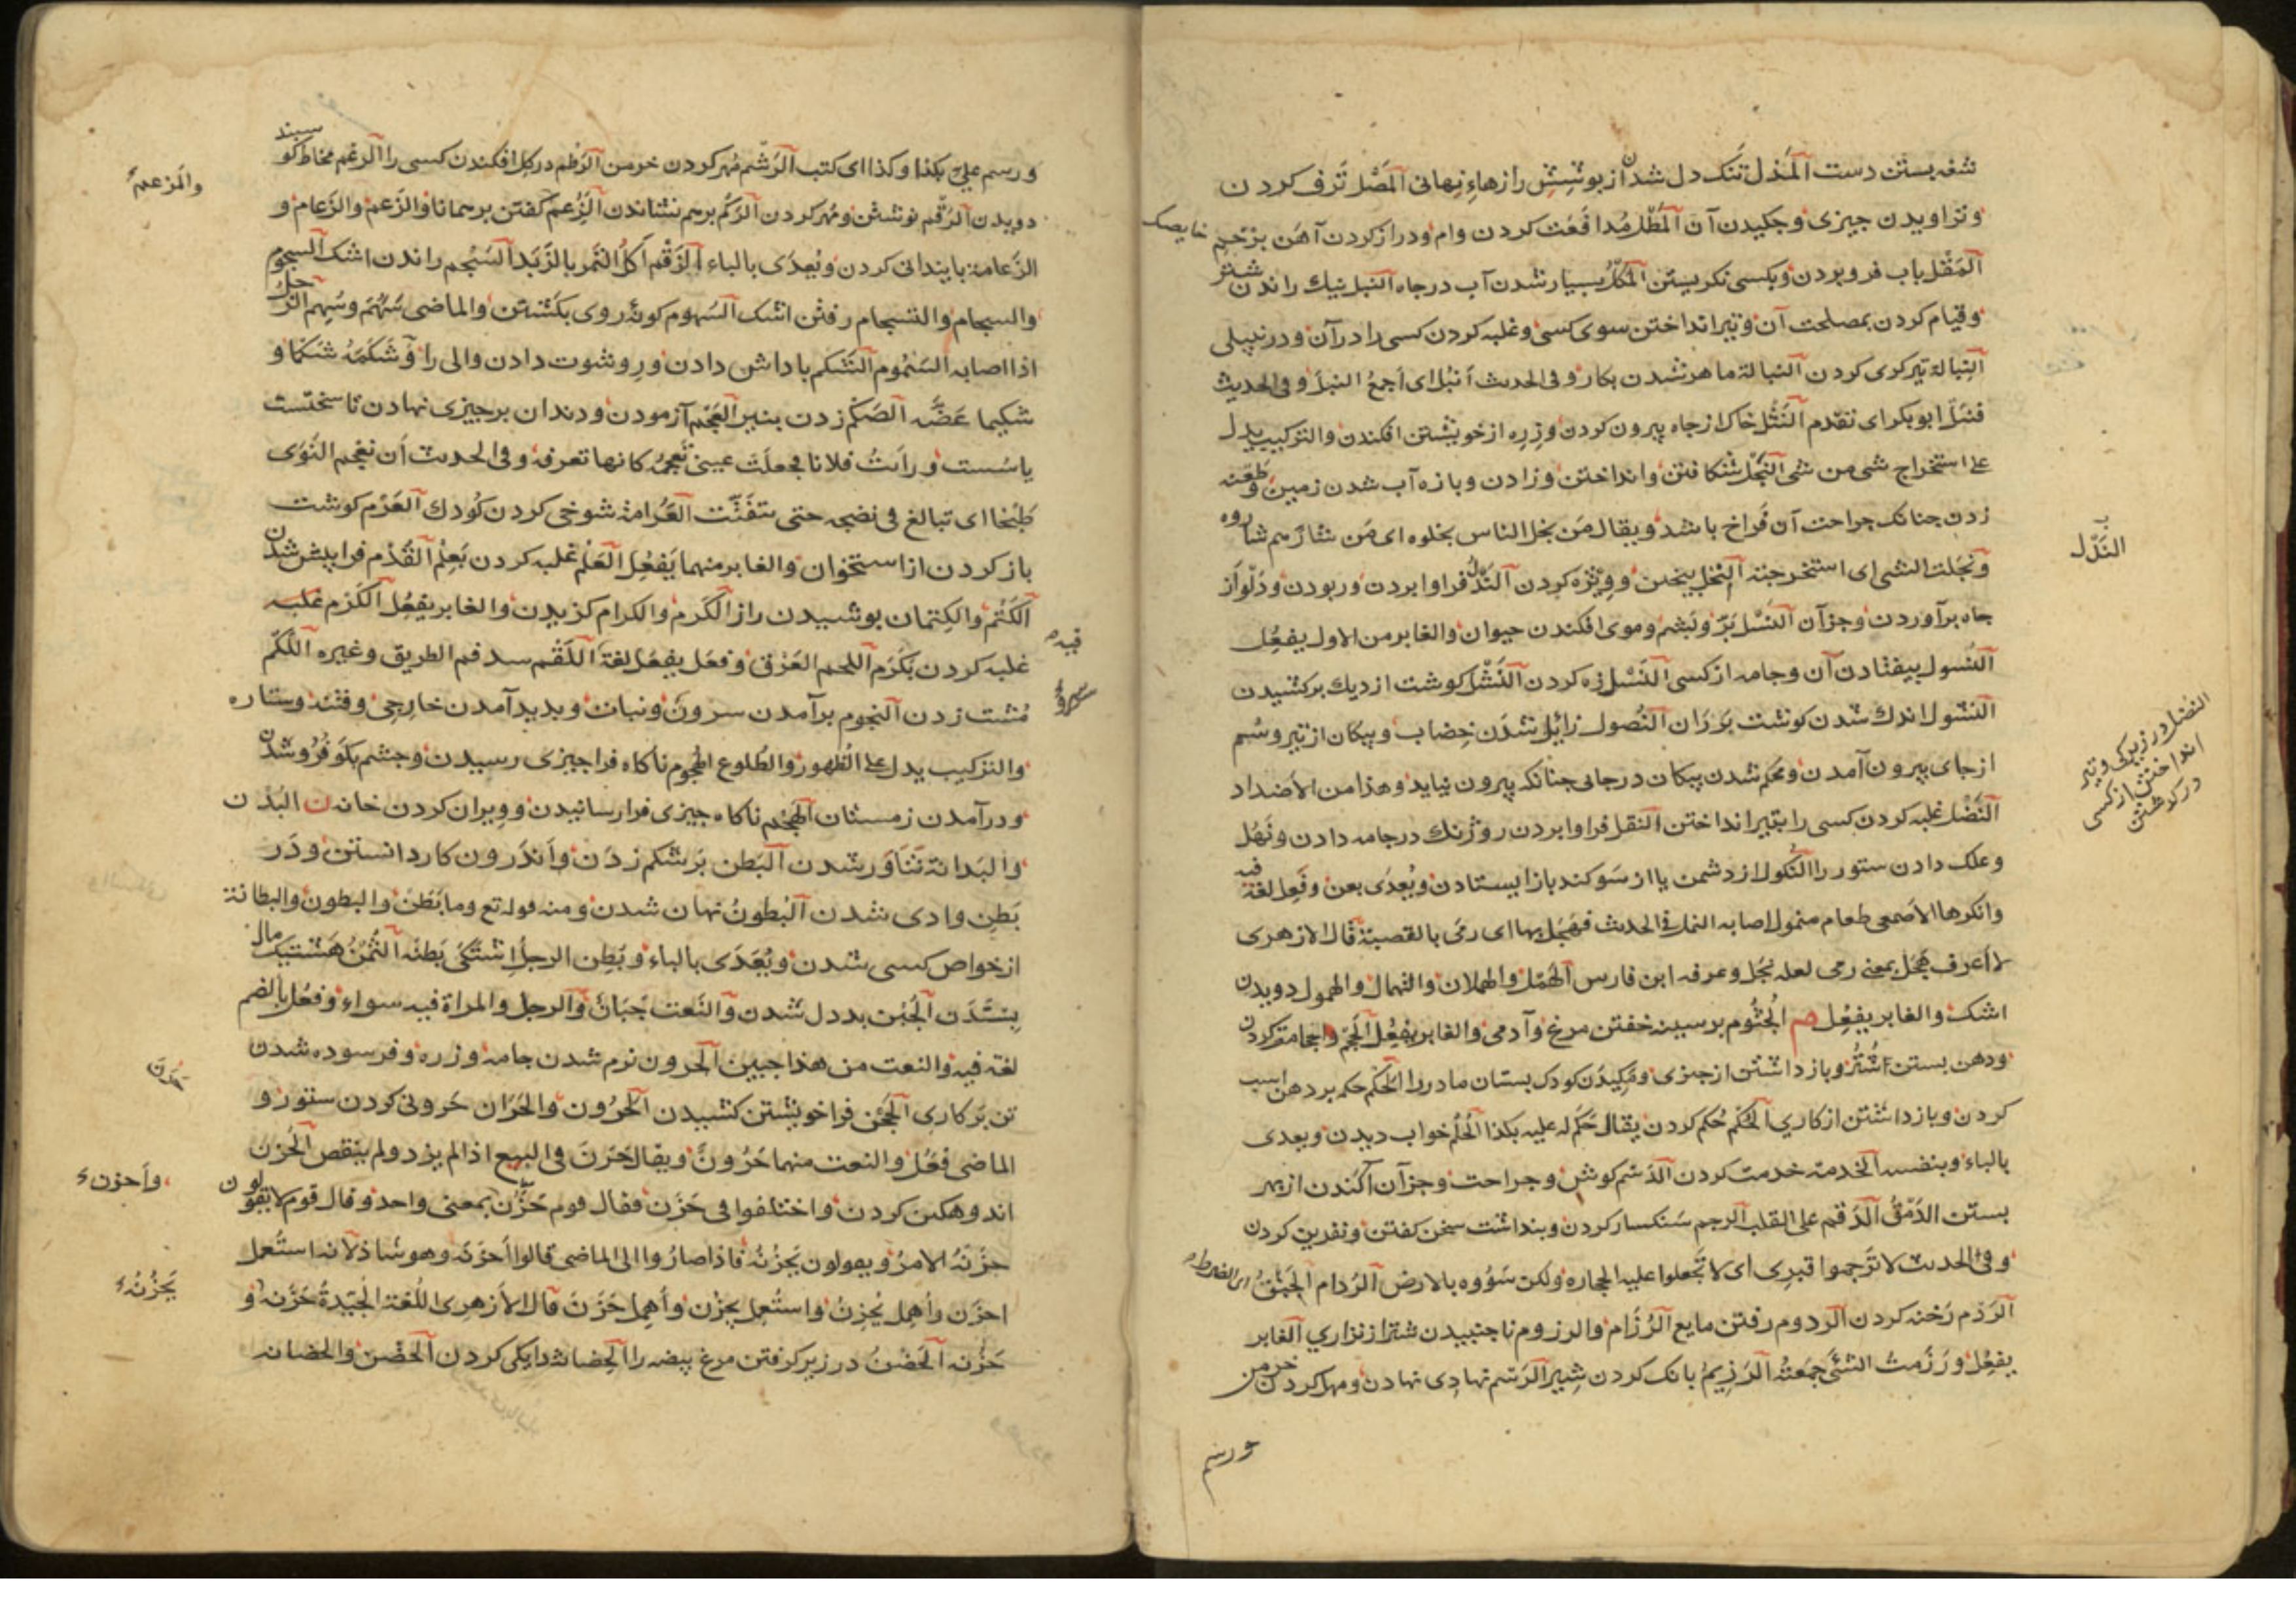 شغه بستن دست المذل تنک دل شدن از پوشش رازهاء نهانی المصل ترف کردن
وتراویدن چیزی وچکیدن آن المطل مدافعت کردن وام ودراز کردن آهن بزخم خایسک
المقل بآب فرو بردن وبکسی نکریستن المکل بسیار شدن آب در چاه النبل نیک راندن شتر
وقیام کردن بمصلحت آن وتیر انداختن سوی کسی وغلبه کردن کسی را در آن ودر نبیلی
النبالة تیرکری کردن النبالة ماهر شدن بکار وفی الحدیث انبل ای اجمع النبل وفی الحدیث
فنبل ابوبکر ای تقدم النثل خاک از چاه بیرون کردن وزره از خویشتن افکندن والترکیب یدل
علی استخراج شی من شی النجل شکافتن وانداختن وزادن وبازه آب شدن زمین وطعنه
زدن چنانک جراحت آن فراخ باشد ویقال من نجل الناس نجلوه ای من شارهم شاروه
ونجلت الشی ای استخرجته النخل بیختن وویژه کردن الندل فراوا بردن وربودن ودلو از
چاه برآوردن وجز آن النسل پر وپشم وموی افکندن حیوان والغابر من الاول یفعل
النسول بیفتادن آن وجامه از کسی النسل زه کردن النشل کوشت از دیک برکشیدن
النشول اندک شدن کوشت بر ران النصول زایل شدن خضاب وپیکان از تیر وسم
از جای بیرون آمدن ومحکم شدن پیکان در جایی چنانکه بیرون نیاید وهذا من الاضداد
النضل غلبه کردن کسی را بتیر انداختن النقل فراوا بردن روژنک در جامه دادن ونهل
وعلک دادن ستور را النکول از دشمن یا از سوکند باز ایستادن ویعدی بعن وفعل لغة فیه
وانکرها الاصمعی طعام منمول اصابه النمل فی الحدیث فهجل بها ای رمی بالقصبة قال الازهری
لا اعرف هجل بمعنی رمی لعله نجل وعرفه ابن فارس الهمل والهملان والنهمال والهمول دویدن
اشک والغابر یفعل هم الجثوم بر سینه خفتن مرغ وآدمی والغابر یفعل الحجم والحجامة کردن
ودهن بستن اشتر وباز داشتن از چیزی ومکیدن کودک پستان مادر را الحکم حکمه بر دهن اسب
کردن وباز داشتن از کاری الحکم حکم کردن یقال حکم له علیه بکذا الحلم خواب دیدن ویعدی
بالباء وبنفسه الخدمة خدمت کردن الدسم کوش وجراحت وجز آن آکندن از بهر
بستن الدمق الدقم علی القلب الرجم سنکسار کردن وپنداشت سخن کفتن ونفرین کردن
وفی الحدیث لا ترجموا قبری ای لا تجعلوا علیه الحجارة ولکن سووه بالارض الردام الحبق ای الضرط
الردم رخنه کردن الردوم رفتن مایع الرزام والرزوم ناجنبیدن شتر از نزاری الغابر
یفعل ورزمت الشئ جمعته الرزیم بانک کردن شیر الرسم نهادی نهادن ومهر کردن خرمن
ورسم
النبل
النضل در زیرکی وتیر
انداختن از کسی
در گذشتن
ورسم علی بکذا وکذا ای کتب الرشم مهر کردن خرمن الرطم در کل افکندن کسی را الرغم مخاط کوسپند
دویدن الرقم نوشتن ومهر کردن الرکم بر هم نشاندن الزعم کفتن بر همانا والزعم والزعام و
الزعامة پایندانی کردن ویعدی بالباء الزقم اکل التمر بالزبد السجم راندن اشک السجوم
والسجام والتسجام رفتن اشک السهوم کونه روی بکشتن والماضی سهم وسهم الرجل
اذا اصابه السموم الشکم پاداش دادن ورشوت دادن والی را وشکمه شکما و
شکیما عضه الصکم زدن بتیر العجم آزمودن ودندان بر چیزی نهادن تا سختست
یا سست ورایت فلانا فجعلت عینی تعجمه کانها تعرفه وفی الحدیث ان نعجم النوی
طبخا ای نبالغ فی نضجه حتی یتفتت العرامة شوخی کردن کودک العرم کوشت
باز کردن از استخوان والغابر منهما یفعل العلم غلبه کردن بعلم القدم فراپیش شدن
الکتم والکتمان پوشیدن راز الکرم والکرام کزیدن والغابر یفعل الکرم غلبه
غلبه کردن بکرم اللحم العرق وفعل یفعل لغة اللقم سد فم الطریق وغیره اللکم
مشت زدن النجوم برآمدن سرون ونبات وپدید آمدن خارجی وفتنه وستاره
والترکیب یدل علی الظهور والطلوع الهجوم ناکاه فرا چیزی رسیدن وچشم بکو فرو شدن
ودرآمدن زمستان الهجم ناکاه چیزی فرا رسانیدن وویران کردن خانه ن البدن
والبدانة تناور شدن البطن بر شکم زدن واندرون کار دانستن ودر
بطن وادی شدن البطون نهان شدن ومنه قوله تع وما بطن والبطون والبطانة
از خواص کسی شدن ویعدی بالباء وبطن الرجل اشتکی بطنه الثمن هشت یک مال
بستدن الجبن بددل شدن والنعت جبان والرجل والمراة فیه سواء وفعل بالضم
لغة فیه والنعت من هذا جبین الجرون نرم شدن جامه وزره وفرسوده شدن
تن بر کاری الحجن فرا خویشتن کشیدن الحرون والحران حرونی کردن ستور و
الماضی فعل والنعت منهما حرون ویقال حرن فی البیع اذا لم یزد ولم ینقص الحزن
اندوهکن کردن واختلفوا فی حزن فقال قوم حزن بمعنی واحد وقال قوم لا یقولون
حزنه الامر ویقولون یحزنه فاذا صاروا الی الماضی قالوا احزنه وهو شاذ لانه استعمل
احزن واهمل یحزن واستعمل یحزن واهمل حزن قال الازهری اللغة الجیدة حزنه و
حزنه الحضن در زیر کرفتن مرغ بیضه را الحضانة دایکی کردن الحضن والحضانة
والمزعم
فیه
سرو
حرن
واحزن
یحزنه